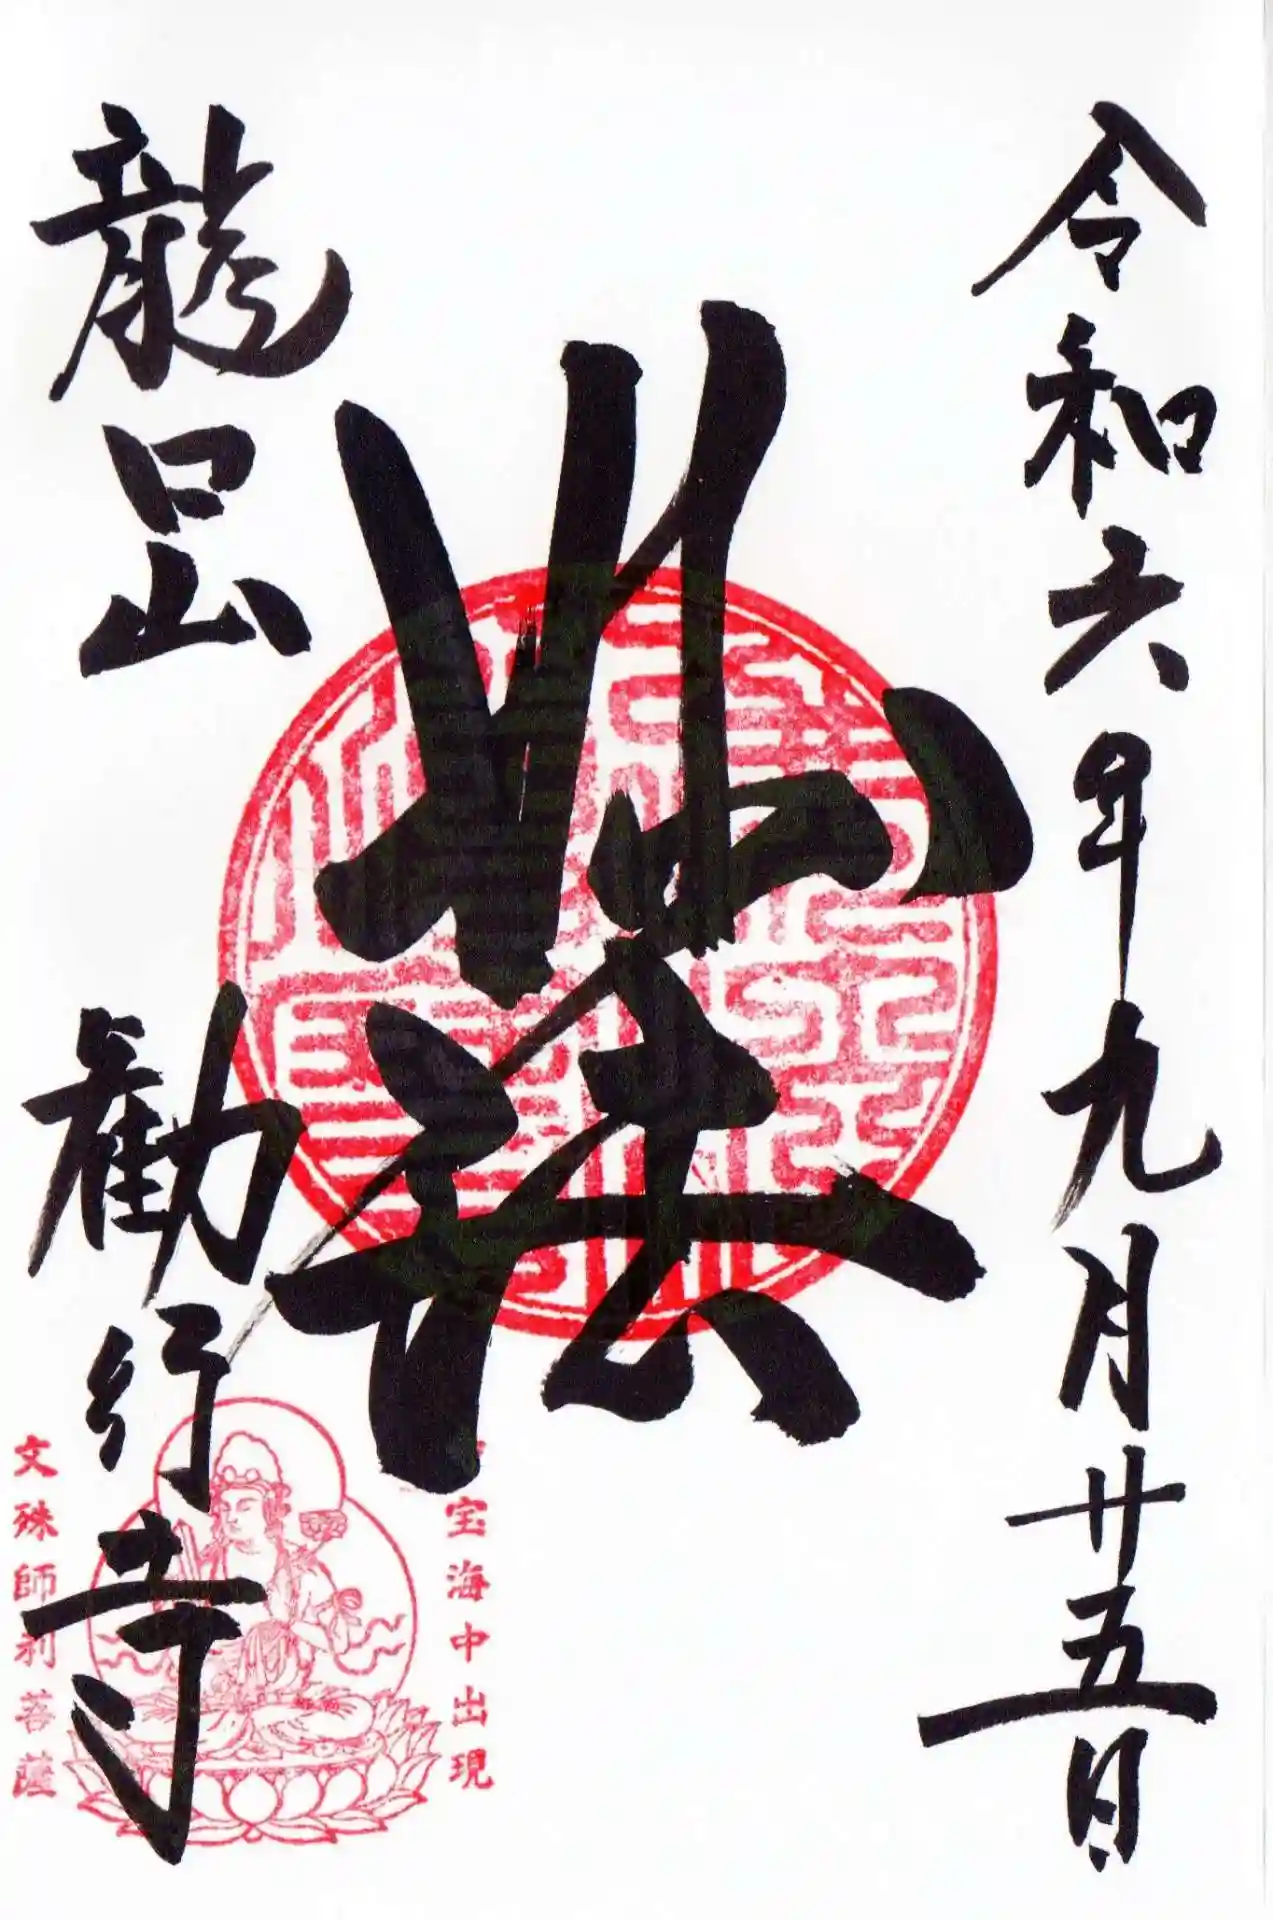 令和六年九月廿五日
妙法
龍口山
勧行寺
宝海中出現
文殊師利菩薩